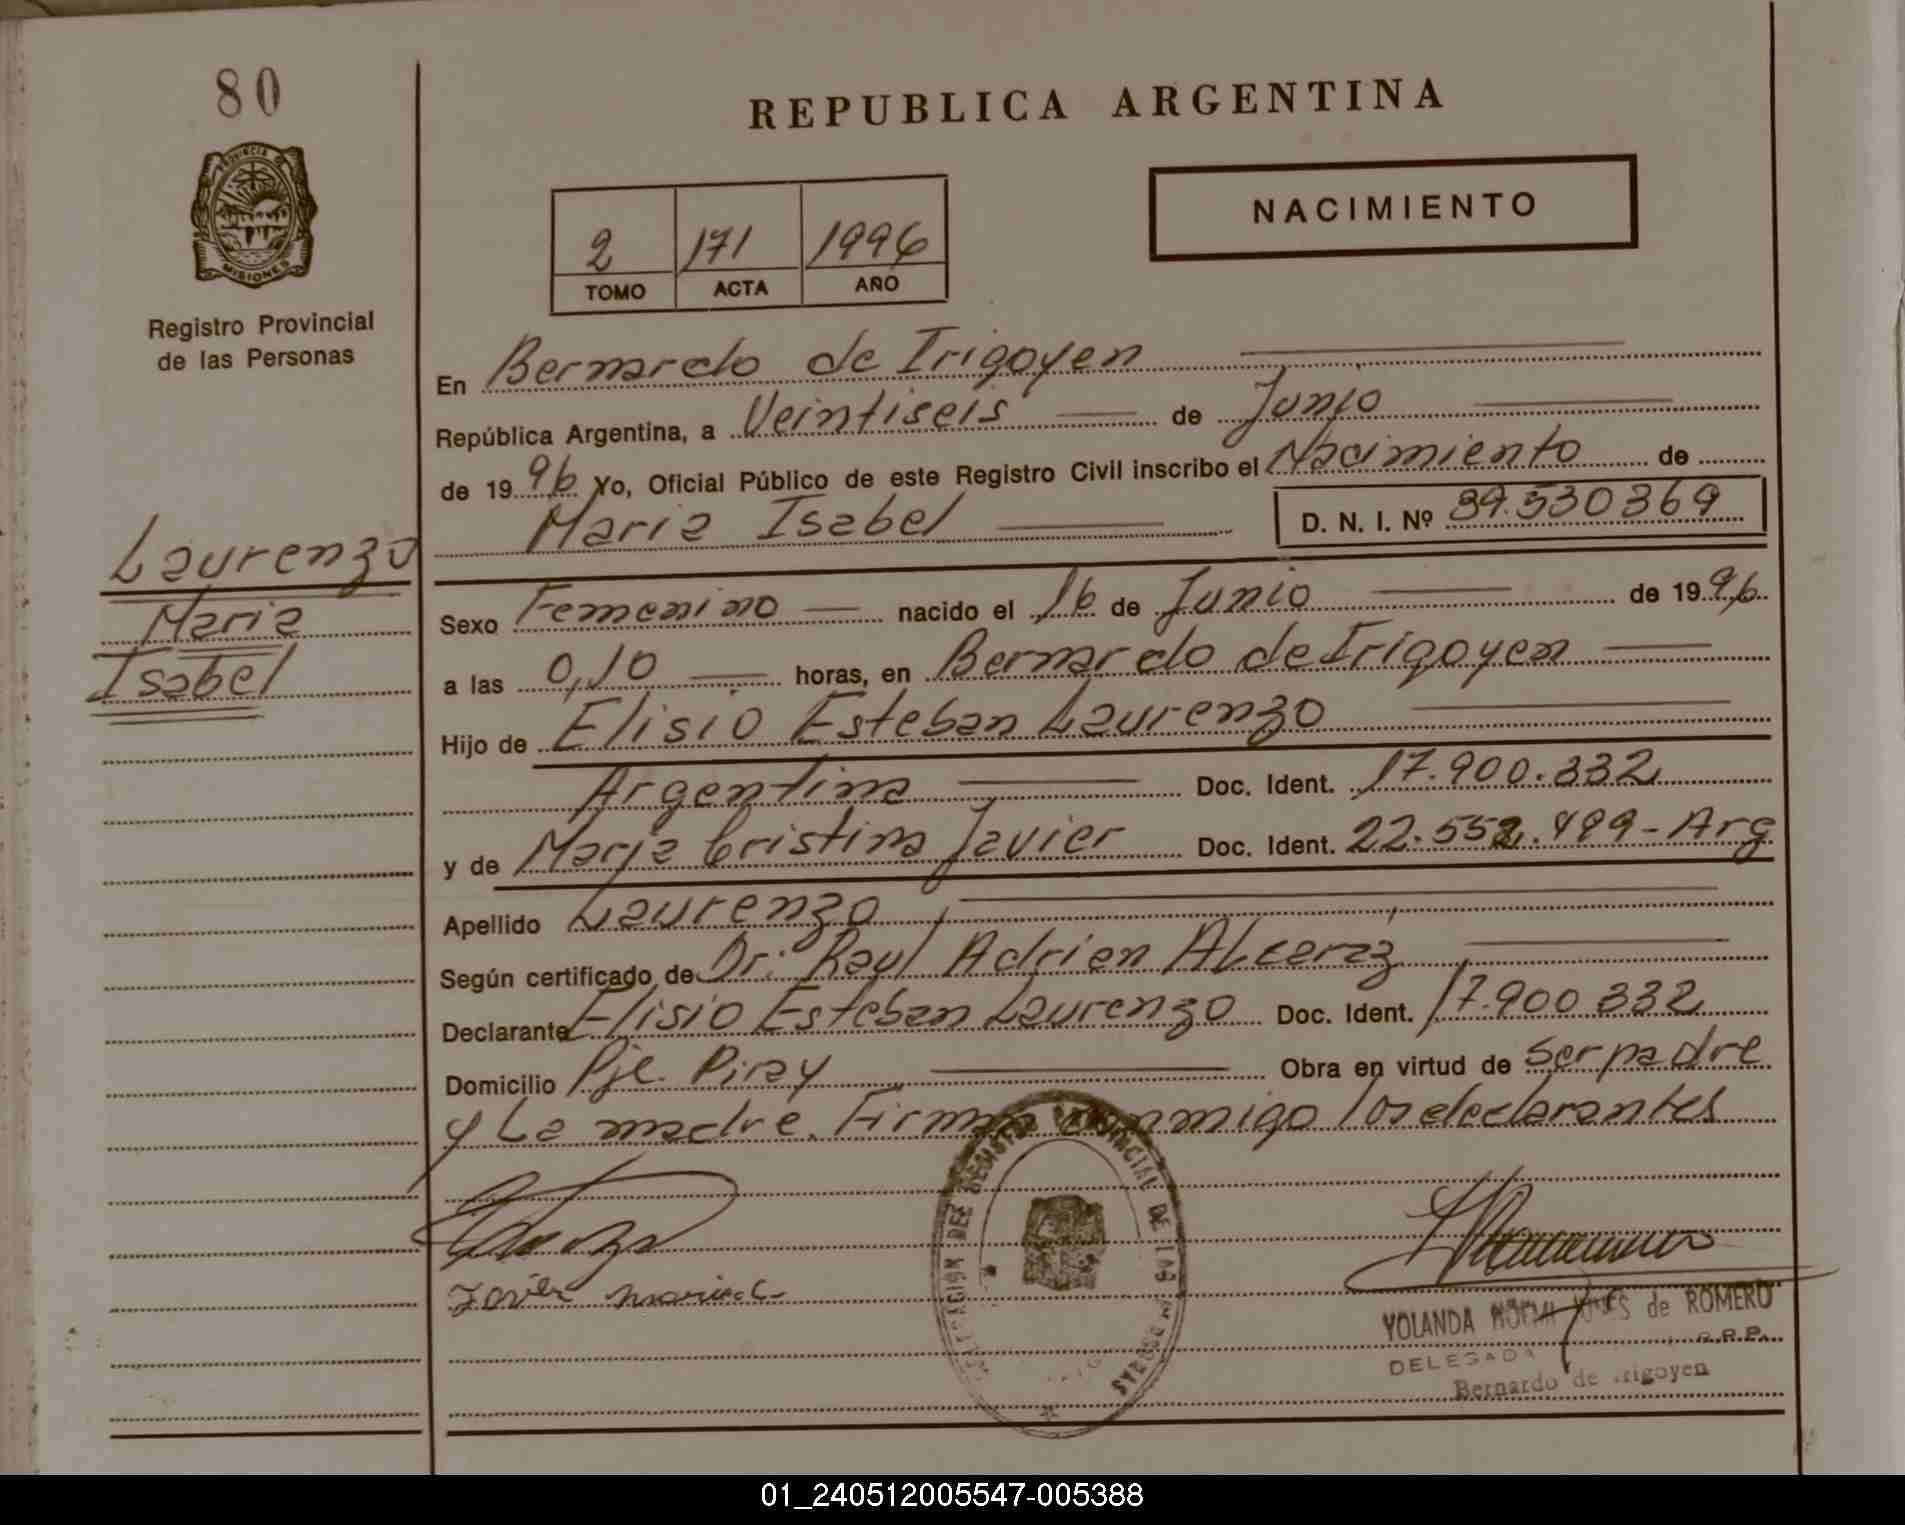 80
REPUBLICA ARGENTINA
PROVINCIA DE
MISIONES
NACIMIENTO
2 171 1996
TOMO ACTA AÑO
Registro Provincial
de las Personas
En Bernardo de Irigoyen
República Argentina, a Veintiseis de Junio
de 19 96 Yo, Oficial Público de este Registro Civil inscribo el Nacimiento de
Maria Isabel D. N. I. Nº 39.530369
Laurenzo
Maria
Isabel
Sexo Femenino nacido el 16 de Junio de 19 96
a las 0,10 horas, en Bernardo de Irigoyen
Hijo de Elisio Esteban Laurenzo
Argentina Doc. Ident. 17.900.332
y de Maria Cristina Javier Doc. Ident. 22.552.499-Arg
Apellido Laurenzo
Según certificado de Dr. Raul Adrien Alceraz
Declarante Elisio Esteban Laurenzo Doc. Ident. 17.900 332
Domicilio Pje. Piray Obra en virtud de ser padre
y La madre. Firman conmigo los declarantes
Javier
REGISTRO PROVINCIAL DE LAS PERSONAS
YOLANDA de ROMERO
DELEGADA R.P.
Bernardo de Irigoyen
01_240512005547-005388